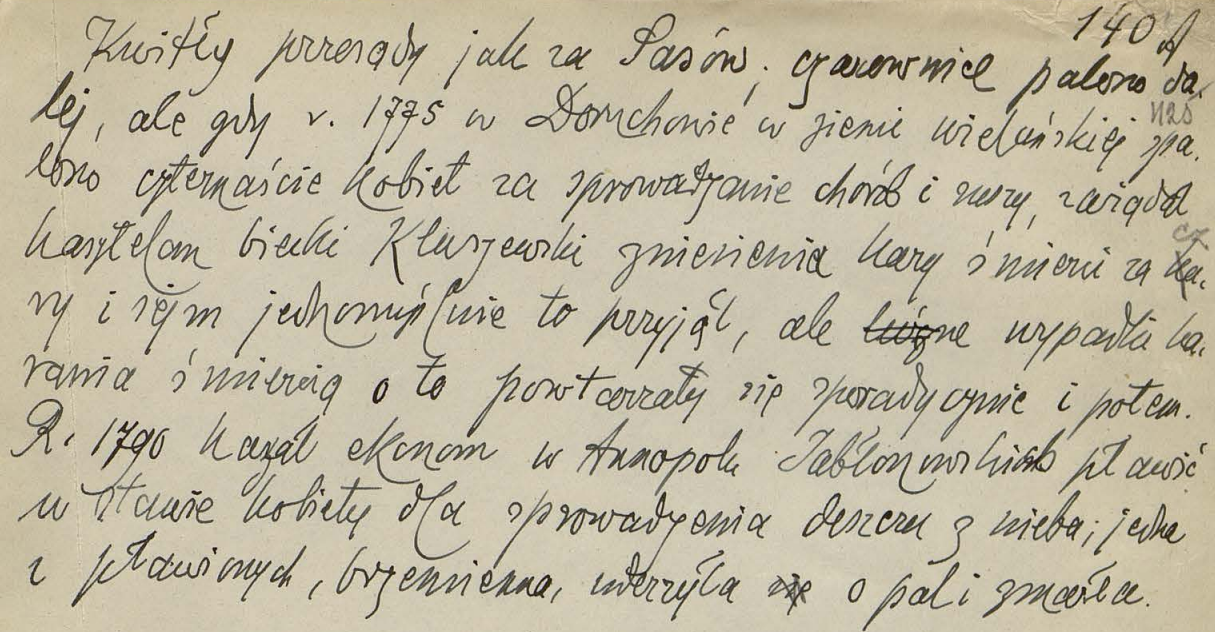 140 A
Kwitły przesądy jak za Sasów, czarownice palono da-
lej, ale gdy r. 1775 w Doruchowie w ziemi wieluńskiej spa-
lono czternaście kobiet za sprowadzanie chorób i suszy, zażądał
kasztelan biecki Kluszewski zniesienia kary śmierci za cza-
ry i sejm jednomyślnie to przyjął, ale wypadki ka-
rania śmiercią o to powtarzały się sporadycznie i potem.
R. 1790 kazał ekonom w Annopolu Jabłonowskich pławić
w stawie kobiety dla sprowadzenia deszczu z nieba; jedna
z pławionych, brzemienna, uderzyła się o pal i zmarła.